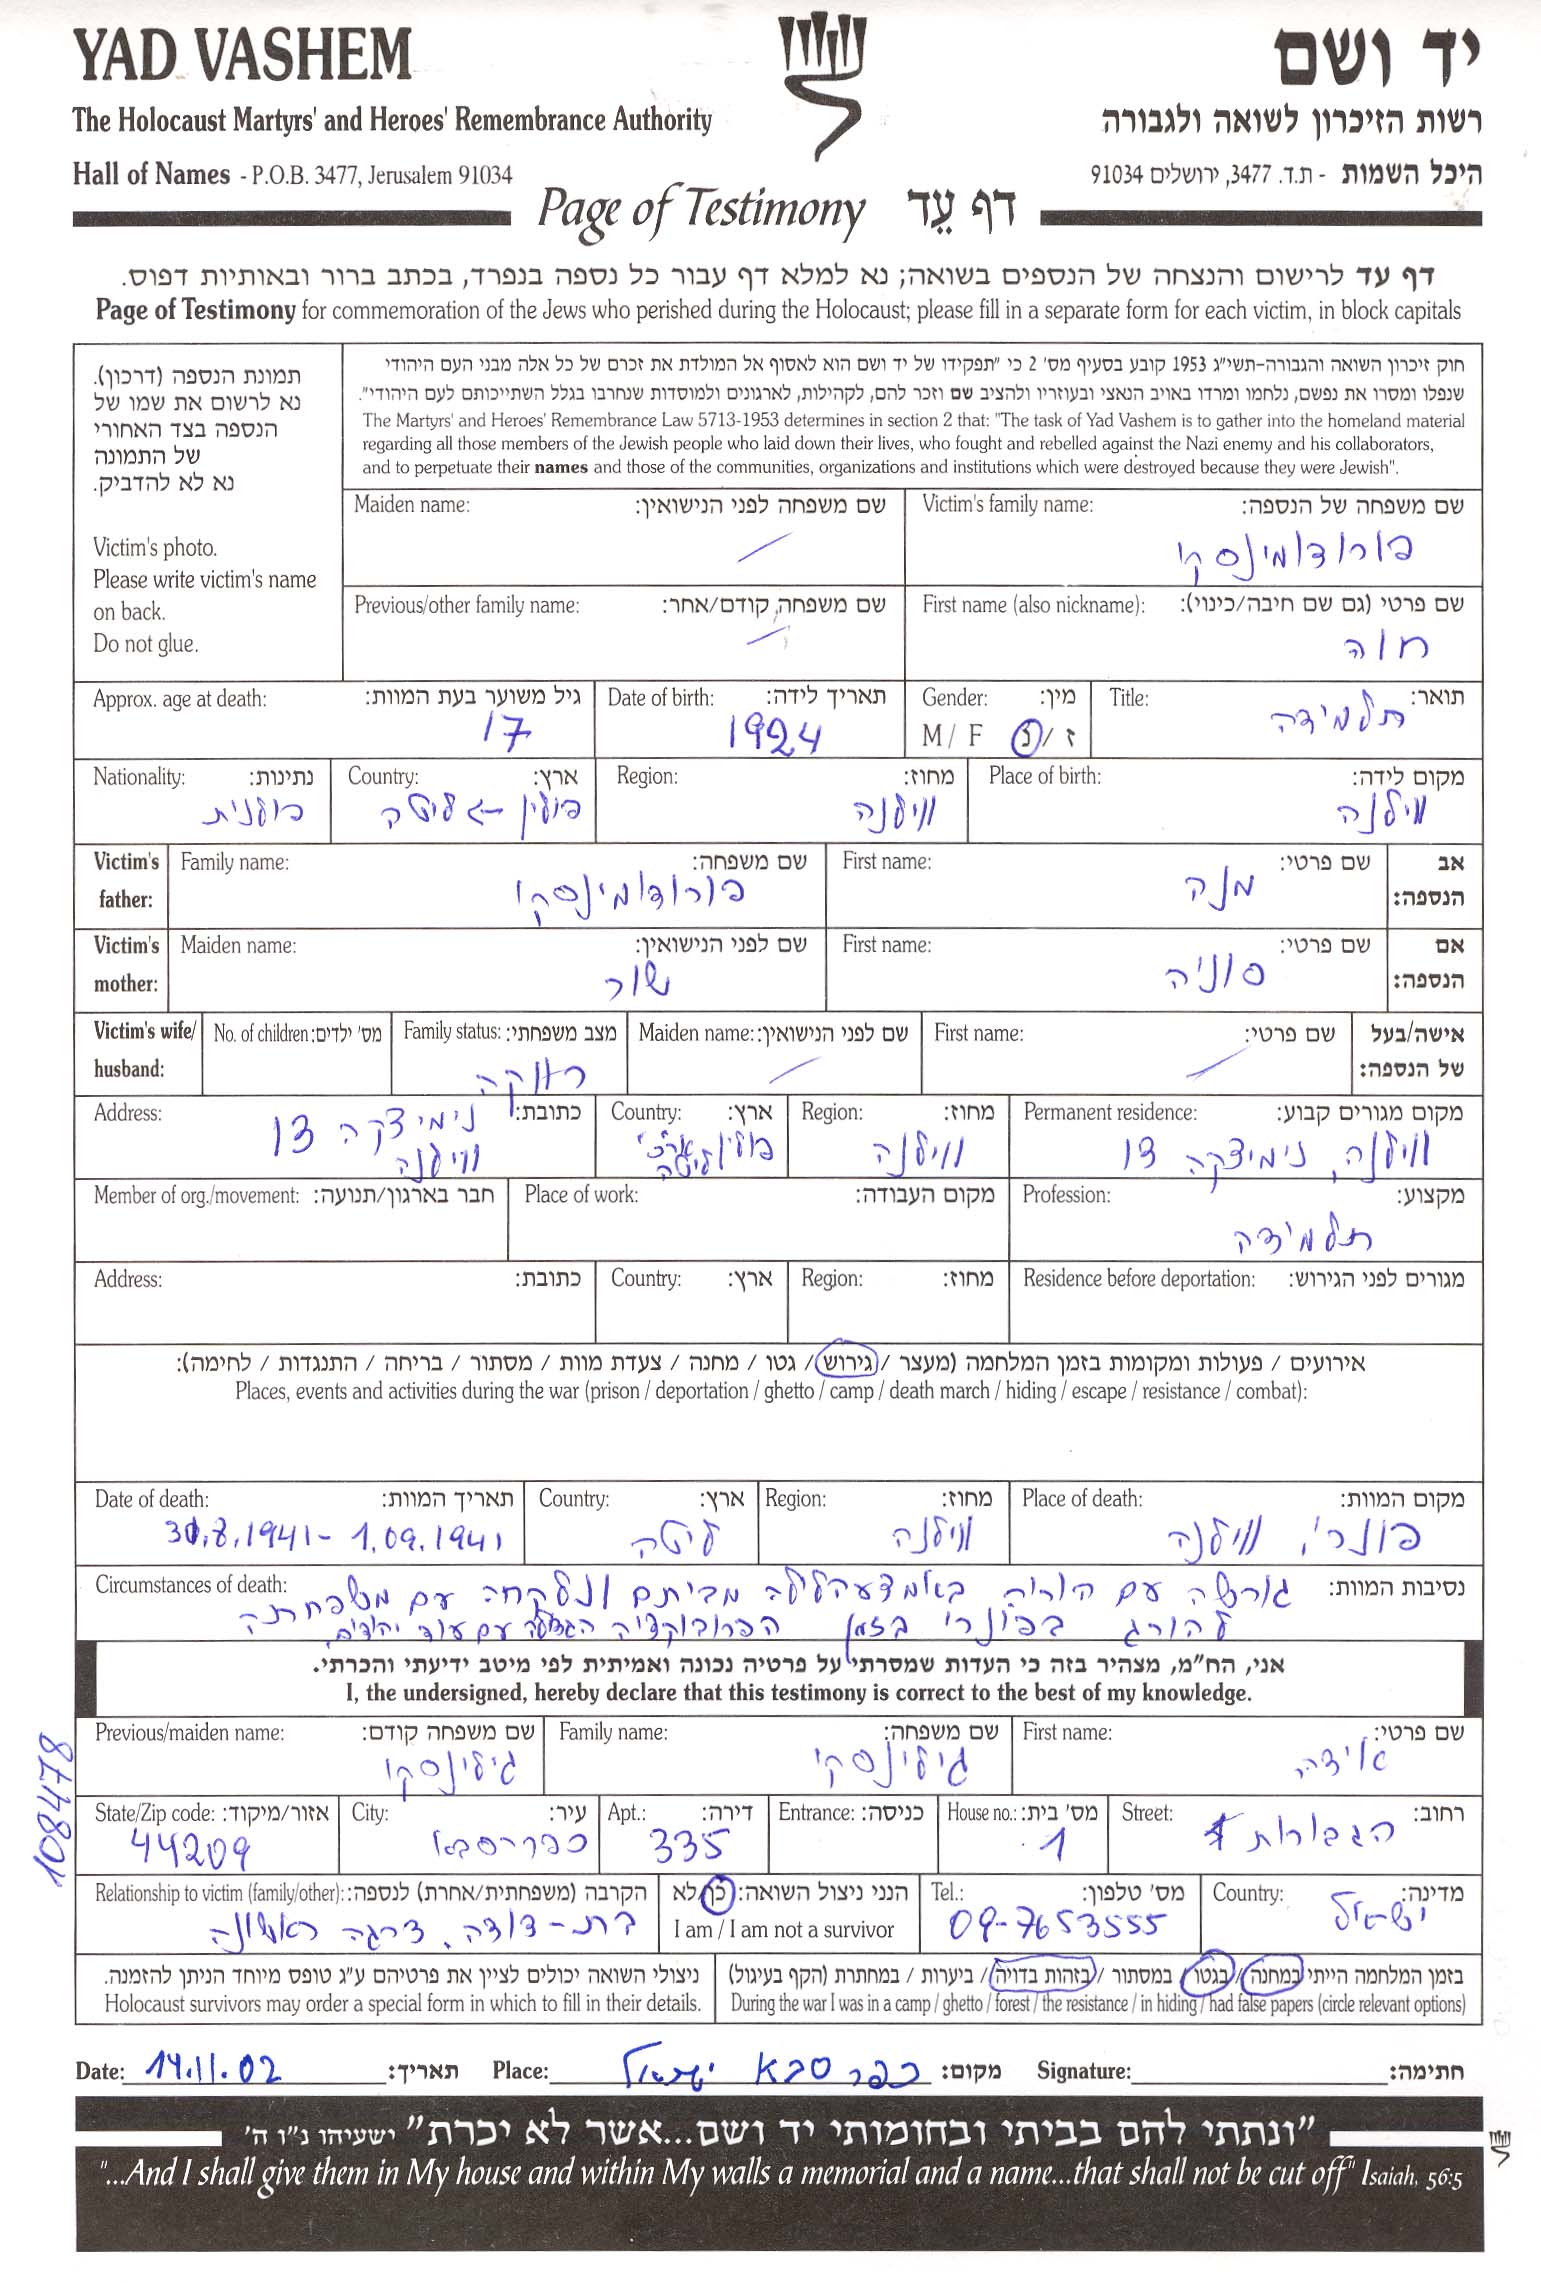 YAD VASHEM
יד ושם
The Holocaust Martyrs' and Heroes' Remembrance Authority
רשות הזיכרון לשואה ולגבורה
Hall of Names - P.O.B. 3477, Jerusalem 91034
היכל השמות - ת.ד. 3477, ירושלים 91034
Page of Testimony דף עֵד
דף עד לרישום והנצחה של הנספים בשואה; נא למלא דף עבור כל נספה בנפרד, בכתב ברור ובאותיות דפוס.
Page of Testimony for commemoration of the Jews who perished during the Holocaust; please fill in a separate form for each victim, in block capitals
תמונת הנספה (דרכון).
נא לרשום את שמו של
הנספה בצד האחורי
של התמונה
נא לא להדביק.
Victim's photo.
Please write victim's name
on back.
Do not glue.
חוק זיכרון השואה והגבורה-תשי"ג 1953 קובע בסעיף מס' 2 כי "תפקידו של יד ושם הוא לאסוף אל המולדת את זכרם של כל אלה מבני העם היהודי
שנפלו ומסרו את נפשם, נלחמו ומרדו באויב הנאצי ובעוזריו ולהציב שם וזכר להם, לקהילות, לארגונים ולמוסדות שנחרבו בגלל השתייכותם לעם היהודי".
The Martyrs' and Heroes' Remembrance Law 5713-1953 determines in section 2 that: "The task of Yad Vashem is to gather into the homeland material
regarding all those members of the Jewish people who laid down their lives, who fought and rebelled against the Nazi enemy and his collaborators,
and to perpetuate their names and those of the communities, organizations and institutions which were destroyed because they were Jewish".
Victim's family name: שם משפחה של הנספה:
פורודומינסקי
Maiden name: שם משפחה לפני הנישואין:
First name (also nickname): שם פרטי (גם שם חיבה/כינוי):
חוה
Previous/other family name: שם משפחה קודם/אחר:
Title: תואר:
תלמידה
Gender: מין:
M / F ז / נ
Date of birth: תאריך לידה:
1924
Approx. age at death: גיל משוער בעת המוות:
17
Place of birth: מקום לידה:
ווילנה
Region: מחוז:
ווילנה
Country: ארץ:
פולין - ליטה
Nationality: נתינות:
פולנית
Victim's father: אב הנספה:
First name: שם פרטי:
מנה
Family name: שם משפחה:
פורודומינסקי
Victim's mother: אם הנספה:
First name: שם פרטי:
סוניה
Maiden name: שם לפני הנישואין:
שור
Victim's wife/ husband: אישה/בעל של הנספה:
First name: שם פרטי:
Maiden name: שם לפני הנישואין:
Family status: מצב משפחתי:
רווקה
No. of children: מס' ילדים:
Permanent residence: מקום מגורים קבוע:
ווילנה, נימיצקה 13
Region: מחוז:
ווילנה
Country: ארץ:
פולין ליטה
Address: כתובת:
נימיצקה 13
ווילנה
Profession: מקצוע:
תלמידה
Place of work: מקום העבודה:
Member of org./movement: חבר בארגון/תנועה:
Residence before deportation: מגורים לפני הגירוש:
Region: מחוז:
Country: ארץ:
Address: כתובת:
אירועים / פעולות ומקומות בזמן המלחמה (מעצר / גירוש / גטו / מחנה / צעדת מוות / מסתור / בריחה / התנגדות / לחימה):
Places, events and activities during the war (prison / deportation / ghetto / camp / death march / hiding / escape / resistance / combat):
Place of death: מקום המוות:
פונרי, ווילנה
Region: מחוז:
ווילנה
Country: ארץ:
ליטה
Date of death: תאריך המוות:
31.8.1941 - 1.09.1941
Circumstances of death: נסיבות המוות:
גורשה עם הוריה באמצע הלילה מביתם ונלקחה עם משפחתה
להורג בפונרי בזמן הפרובוקציה הגדולה עם עוד יהודים.
אני, הח"מ, מצהיר בזה כי העדות שמסרתי על פרטיה נכונה ואמיתית לפי מיטב ידיעתי והכרתי.
I, the undersigned, hereby declare that this testimony is correct to the best of my knowledge.
First name: שם פרטי:
אידה
Family name: שם משפחה:
גילינסקי
Previous/maiden name: שם משפחה קודם:
גילינסקי
Street: רחוב:
הגבורות 1
House no.: מס' בית:
1
Entrance: כניסה:
Apt.: דירה:
335
City: עיר:
כפר סבא
State/Zip code: אזור/מיקוד:
44209
108478
Country: מדינה:
ישראל
Tel.: מס' טלפון:
09-7653555
הנני ניצול השואה: כן לא
I am / I am not a survivor
Relationship to victim (family/other): הקרבה (משפחתית/אחרת) לנספה:
בת-דודה, דרגה ראשונה
בזמן המלחמה הייתי במחנה / בגטו / במסתור / בזהות בדויה / ביערות / במחתרת (הקף בעיגול)
During the war I was in a camp / ghetto / forest / the resistance / in hiding / had false papers (circle relevant options)
ניצולי השואה יכולים לציין את פרטיהם ע"ג טופס מיוחד הניתן להזמנה.
Holocaust survivors may order a special form in which to fill in their details.
Date: 14.11.02 תאריך: Place: כפר סבא ישראל מקום: Signature: חתימה:
"ונתתי להם בביתי ובחומותי יד ושם...אשר לא יכרת" ישעיהו נ"ו ה'
"...And I shall give them in My house and within My walls a memorial and a name...that shall not be cut off" Isaiah, 56:5